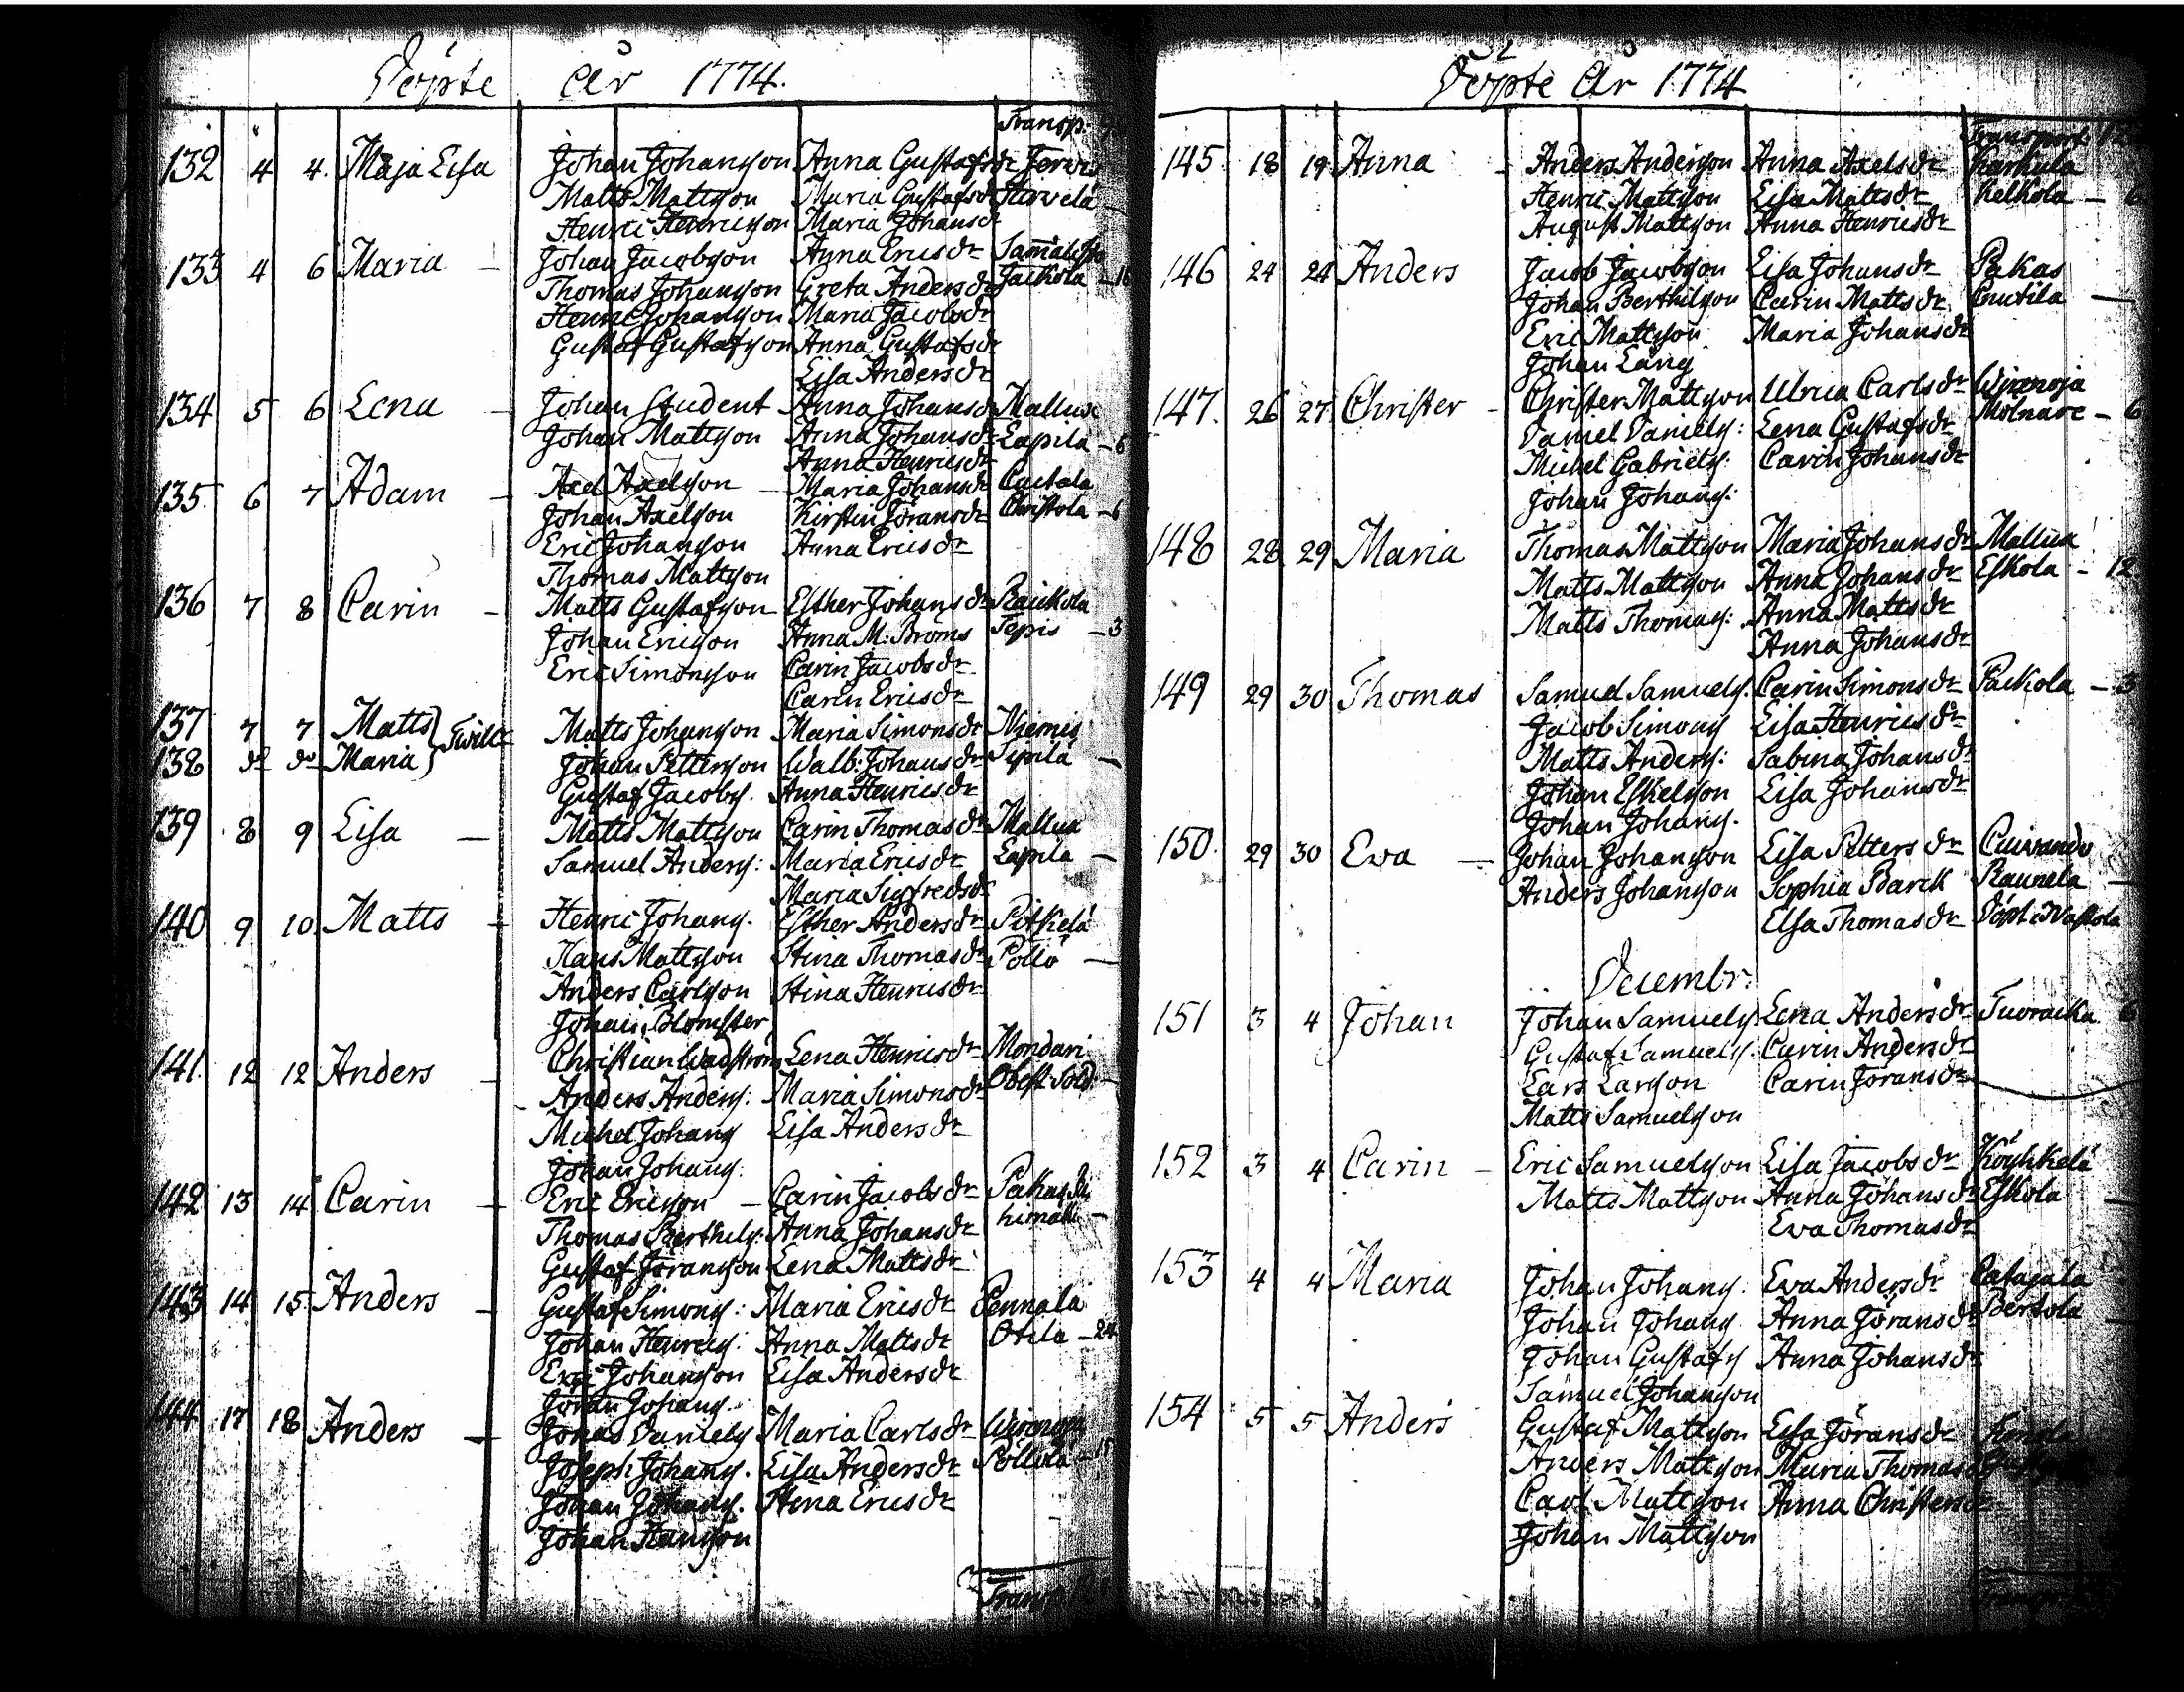 Döpte År 1774.
Transp.
132 4 4. Maja Lisa Johan Johansson Anna Gustafsdr
Matts Mattsson Maria Gustafsdr Hirvelä
Henric Henricsson Maria Johansdr
133 4 6 Maria – Johan Jacobsson Anna Ericsdr
Thomas Johansson Greta Andersdr Jackola – 16
Henric Johansson Maria Jacobsdr
Gustaf Gustafsson Anna Gustafsdr
Lisa Andersdr
134 5 6 Lena – Johan Student Anna Johansdr Mallua
Johan Mattsson Anna Johansdr Lapila – 6
Anna Henricsdr
135 6 7 Adam – Axel Axelsson – Maria Johansdr
Johan Axelsson Kirstin Göransdr Christola – 6
Eric Johansson Anna Ericsdr
Thomas Mattsson
136 7 8 Carin – Matts Gustafsson Esther Johansdr Raickola
Johan Ericsson Anna M: Broms Sepis – 3
Eric Simonsson Carin Jacobsdr
Carin Ericsdr
137 7 7 Matts } Matts Johansson Maria Simonsdr Niemis
138 do do Maria } Johan Pettersson Walb: Johansdr Sipilä –
Gustaf Jacobss. Anna Henricsdr
139 8 9 Lisa – Matts Mattsson Carin Thomasdr Mallua
Samuel Anderss: Maria Ericsdr Lapila –
Maria Sigfredsdr
140 9 10 Matts – Henric Johanss. Esther Andersdr Pitkelä
Hans Mattsson Stina Thomasdr Pöllö –
Anders Carlsson Stina Henricsdr
Johan Blomster
141. 12 12 Anders – Christian Wadström Lena Henricsdr Mondari
Anders Anderss: Maria Simonsdr Öbest: Sold. –
Michel Johanss Lisa Andersdr
Johan Johanss:
142 13 14 Carin – Eric Ericsson – Carin Jacobsdr Pakas
Thomas Berthils: Anna Johansdr
Gustaf Göransson Lena Mattsdr
143 14 15 Anders – Gustaf Simons: Maria Ericsdr Pennala
Johan Henrics: Anna Mattsdr Otila – 24
Eric Johansson Lisa Andersdr
Göran Johanss.
144 17 18 Anders – Jonas Daniels Maria Carlsdr
Joseph Johanss. Lisa Andersdr
Johan Johanss. Stina Ericsdr
Johan Hansson
Transp.
Döpte År 1774
Transport
145 18 19 Anna – Anders Andersson Anna Axelsdr Karhula
Henric Mattsson Lisa Mattsdr Kelkola – 6
August Mattsson Anna Henricsdr
146 24 24 Anders Jacob Jacobsson Lisa Johansdr Pakas
Johan Berthilsson Carin Mattsdr Cnutila –
Eric Mattsson Maria Johansdr
Johan Lång
147. 26 27 Christer – Christer Mattsson Ulrica Carlsdr
Daniel Daniels: Lena Gustafsdr Molnare – 6
Michel Gabriels: Carin Johansdr
Johan Johans:
148 28 29 Maria Thomas Mattsson Maria Johansdr Mallua
Matts Mattsson Anna Johansdr Eskola – 12
Matts Thomas: Anna Mattsdr
Anna Johansdr
149 29 30 Thomas Samuel Samuels. Carin Simonsdr Päckola – 3
Jacob Simons Lisa Henricsdr
Matts Anders: Sabina Johansdr
Johan Eskelsson Lisa Johansdr
Johan Johans.
150. 29 30 Eva – Johan Johansson Lisa Pettersdr
Anders Johansson Sophia Barck Raunela –
Elsa Thomasdr
Decembr:
151 3 4 Johan Johan Samuels. Lena Andersdr 6
Gustaf Samuels. Carin Andersdr
Lars Larsson Carin Göransdr
Matts Samuelsson
152 3 4 Carin – Eric Samuelsson Lisa Jacobsdr Köyhkelä
Matts Mattsson Anna Johansdr Eskola –
Eva Thomasdr
153 4 4 Maria Johan Johans. Eva Andersdr Catajala
Johan Johans Anna Göransdr Bertola
Johan Gustafs Anna Johansdr
Samuel Johansson
154 5 5 Anders Gustaf Mattsson Lisa Göransdr
Anders Mattsson Maria Thomasdr
Carl Mattsson Anna Christersdr
Johan Mattsson